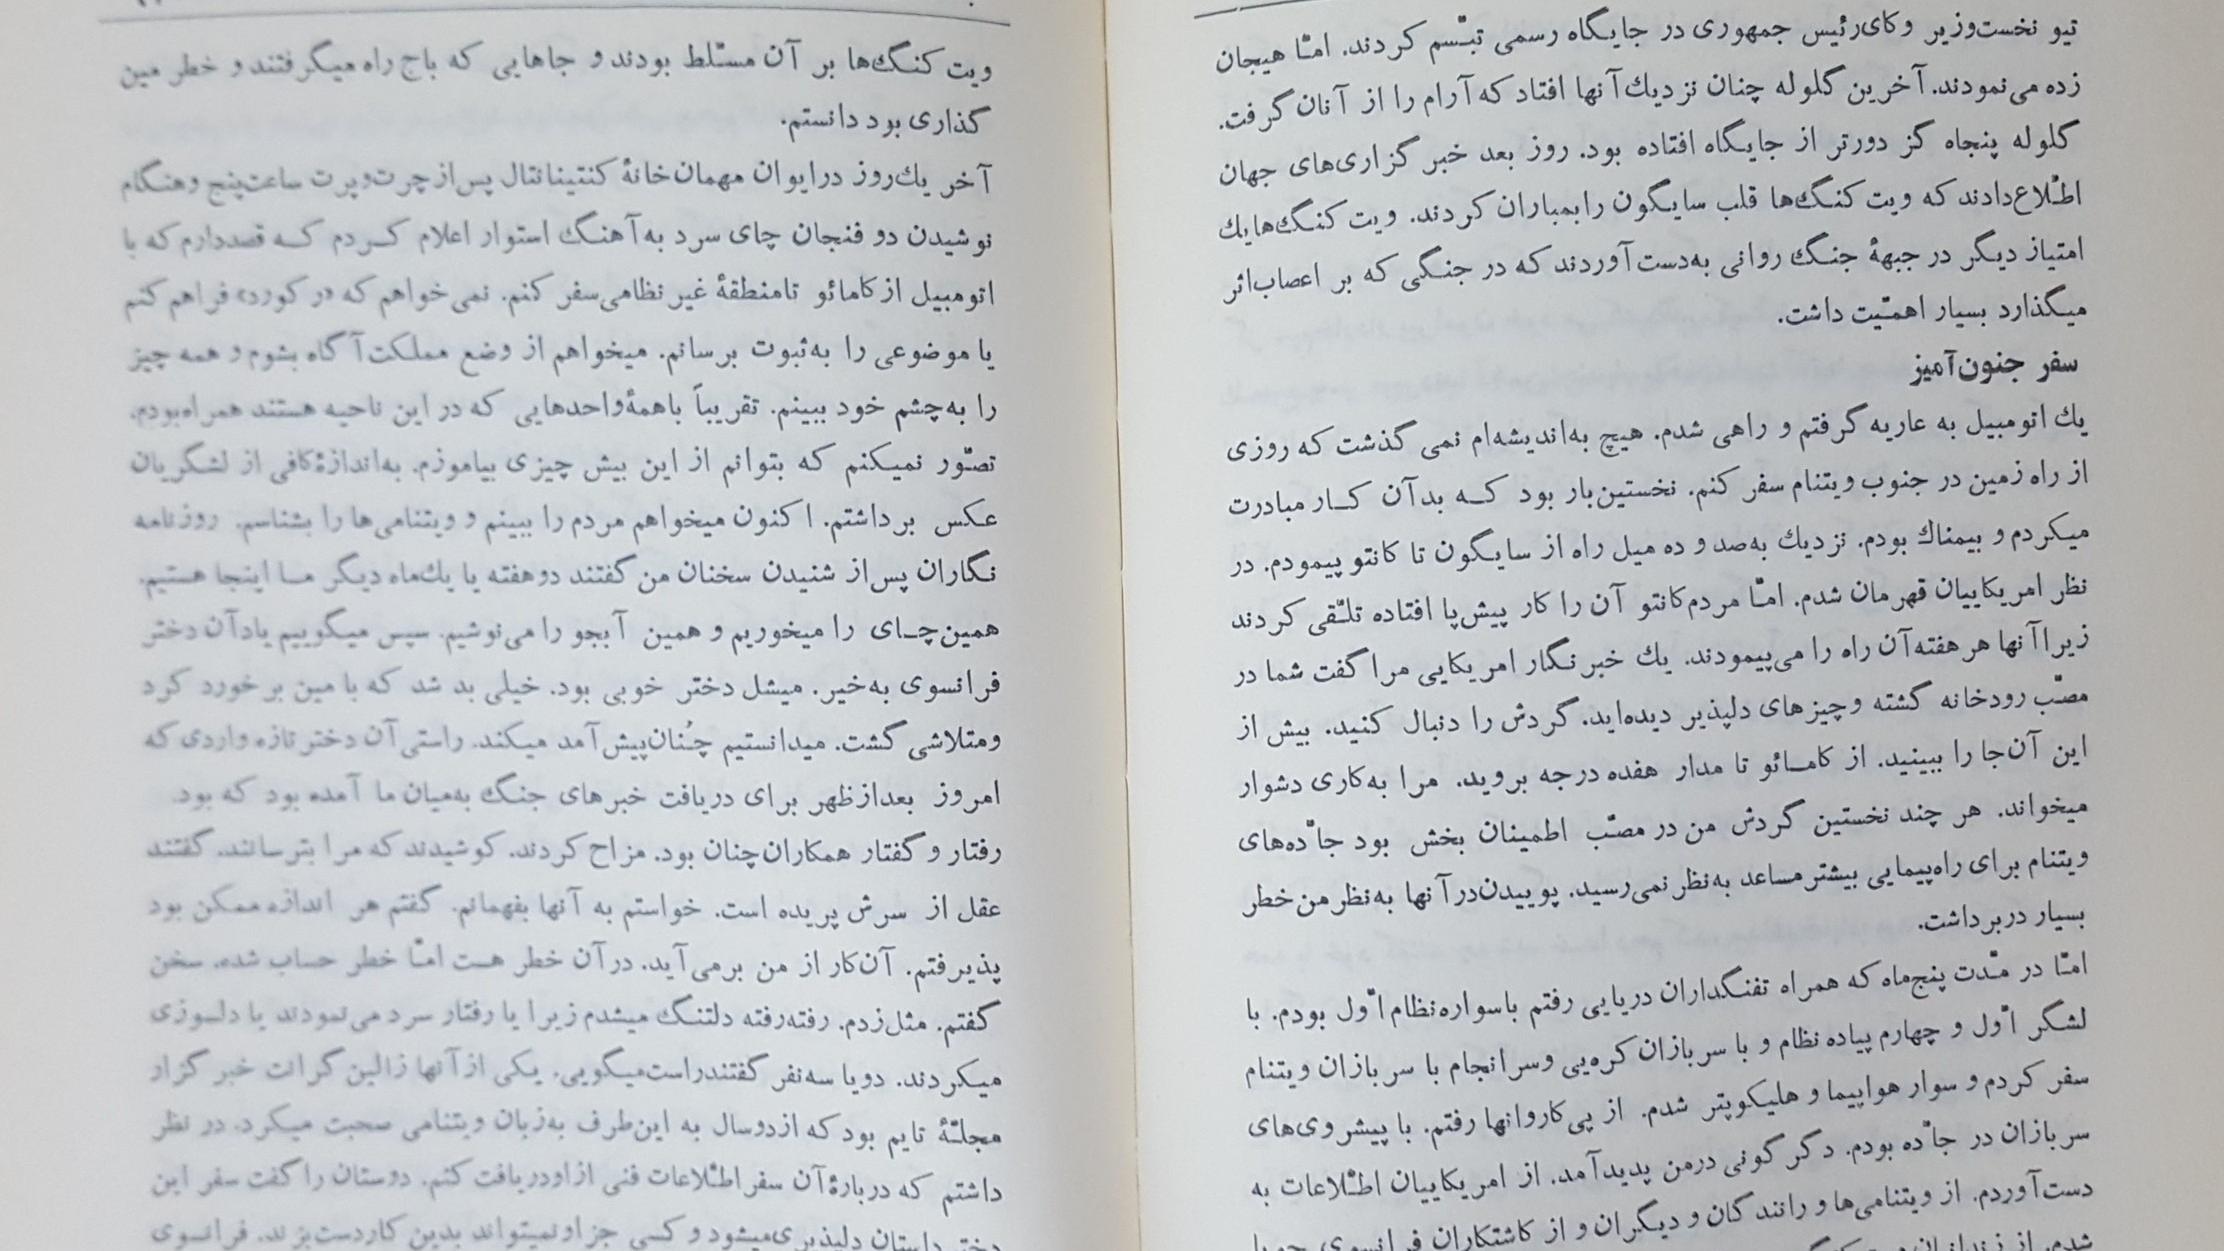 تیو نخست‌وزیر وکای‌رئیس جمهوری در جایگاه رسمی تبسّم کردند. امّا هیجان
زده می‌نمودند. آخرین گلوله چنان نزدیك آنها افتاد که آرام را از آنان گرفت.
گلوله پنجاه گز دورتر از جایگاه افتاده بود. روز بعد خبر گزاری‌های جهان
اطّلاع‌دادند که ویت کنگ‌ها قلب سایگون را بمباران کردند. ویت کنگ‌ها یك
امتیاز دیگر در جبههٔ جنگ روانی به‌دست آوردند که در جنگی که بر اعصاب اثر
میگذارد بسیار اهمّیت داشت.
سفر جنون‌آمیز
یك اتومبیل به عاریه گرفتم و راهی شدم. هیچ به‌اندیشه‌ام نمی گذشت که روزی
از راه زمین در جنوب ویتنام سفر کنم. نخستین‌بار بود کـه بدآن کـار مبادرت
میکردم و بیمناك بودم. نزدیك به‌صد و ده میل راه از سایگون تا کانتو پیمودم. در
نظر امریکاییان قهرمان شدم. امّا مردم کانتو آن را کار پیش‌پا افتاده تلّقی کردند
زیرا آنها هر هفته آن راه را می‌پیمودند. یك خبر نگار امریکایی مرا گفت شما در
مصّب رودخانه گشته وچیزهای دلپذیر دیده‌اید. گردش را دنبال کنید. بیش از
این آن‌جا را ببینید. از کامـائو تا مدار هفده درجه بروید. مرا به‌کاری دشوار
میخواند. هر چند نخستین گردش من در مصّب اطمینان بخش بود جاّده‌های
ویتنام برای راه‌پیمایی بیشتر مساعد به‌نظر نمی‌رسید. پوییدن‌درآنها به‌نظر من خطر
بسیار دربرداشت.
امّا در مّدت پنج‌ماه که همراه تفنگداران دریایی رفتم باسواره‌نظام اّول بودم. با
لشگر اّول و چهارم پیاده نظام و با سربازان کره‌یی وسرانجام با سربازان ویتنام
سفر کردم و سوار هواپیما و هلیکوپتر شدم. از پی کاروانها رفتم. با پیشروی‌های
سربازان در جاّده بودم. دگر گونی درمن پدیدآمد. از امریکاییان اطّلاعات به
دست‌آوردم. از ویتنامی‌ها و رانندگان و دیگران و از کاشتکاران فرانسوی جویا
شدم. از زندانیان
ویت کنگ‌ها بر آن مسّلط بودند و جاهایی که باج راه میگرفتند و خطر مین
گذاری بود دانستم.
آخر یك‌روز درایوان مهمان‌خانهٔ کنتیناننتال پس‌از چرت‌وپرت ساعت‌پنج وهنگام
نوشیدن دو فنجان چای سرد به‌آهنگ استوار اعلام کـردم کـه قصددارم که با
اتومبیل از کامائو تامنطقهٔ غیر نظامی‌سفر کنم. نمی‌خواهم که «رکورد» فراهم کنم
یا موضوعی را به‌ثبوت برسانم. میخواهم از وضع مملکت‌آگاه بشوم و همه چیز
را به‌چشم خود ببینم. تقریباً باهمهٔ‌واحدهایی که در این ناحیه هستند همراه‌بودم.
تصّور نمیکنم که بتوانم از این بیش چیزی بیاموزم. به‌اندازهٔ‌کافی از لشگریان
عکس برداشتم. اکنون میخواهم مردم را ببینم و ویتنامی‌ها را بشناسم. روزنامه
نگاران پس‌از شنیدن سخنان من گفتند دوهفته یا یك‌ماه دیگر مـا اینجا هستیم.
همین‌چـای را میخوریم و همین آبجو را می‌نوشیم. سپس میگوییم یادآن دختر
فرانسوی به‌خیر. میشل دختر خوبی بود. خیلی بد شد که با مین برخورد کرد
ومتلاشی گشت. میدانستیم چُنان‌پیش‌آمد میکند. راستی آن دختر تازه واردی که
امروز بعدازظهر برای دریافت خبرهای جنگ به‌میان ما آمده بود که بود.
رفتار و گفتار همکاران‌چنان بود. مزاح کردند. کوشیدند که مرا بترسانند. گفتند
عقل از سرش پریده است. خواستم به آنها بفهمانم. گفتم هر اندازه ممکن بود
پذیرفتم. آن‌کار از من برمی‌آید. درآن خطر هست امّا خطر حساب شده. سخن
گفتم. مثل‌زدم. رفته‌رفته دلتنگ میشدم زیرا یا رفتار سرد می‌نمودند یا دلسوزی
میکردند. دویا سه‌نفر گفتندراست‌میگویی. یکی از آنها زالین گرانت خبر گزار
مجلّهٔ تایم بود که ازدوسال به این‌طرف به‌زبان ویتنامی صحبت میکرد. در نظر
داشتم که دربارهٔ‌آن سفر اطّلاعات فنی ازاودریافت کنم. دوستان را گفت سفر این
دختر داستان دلپذیری‌میشود و کسی جز اونمیتواند بدین کاردست‌بزند. فرانسوی